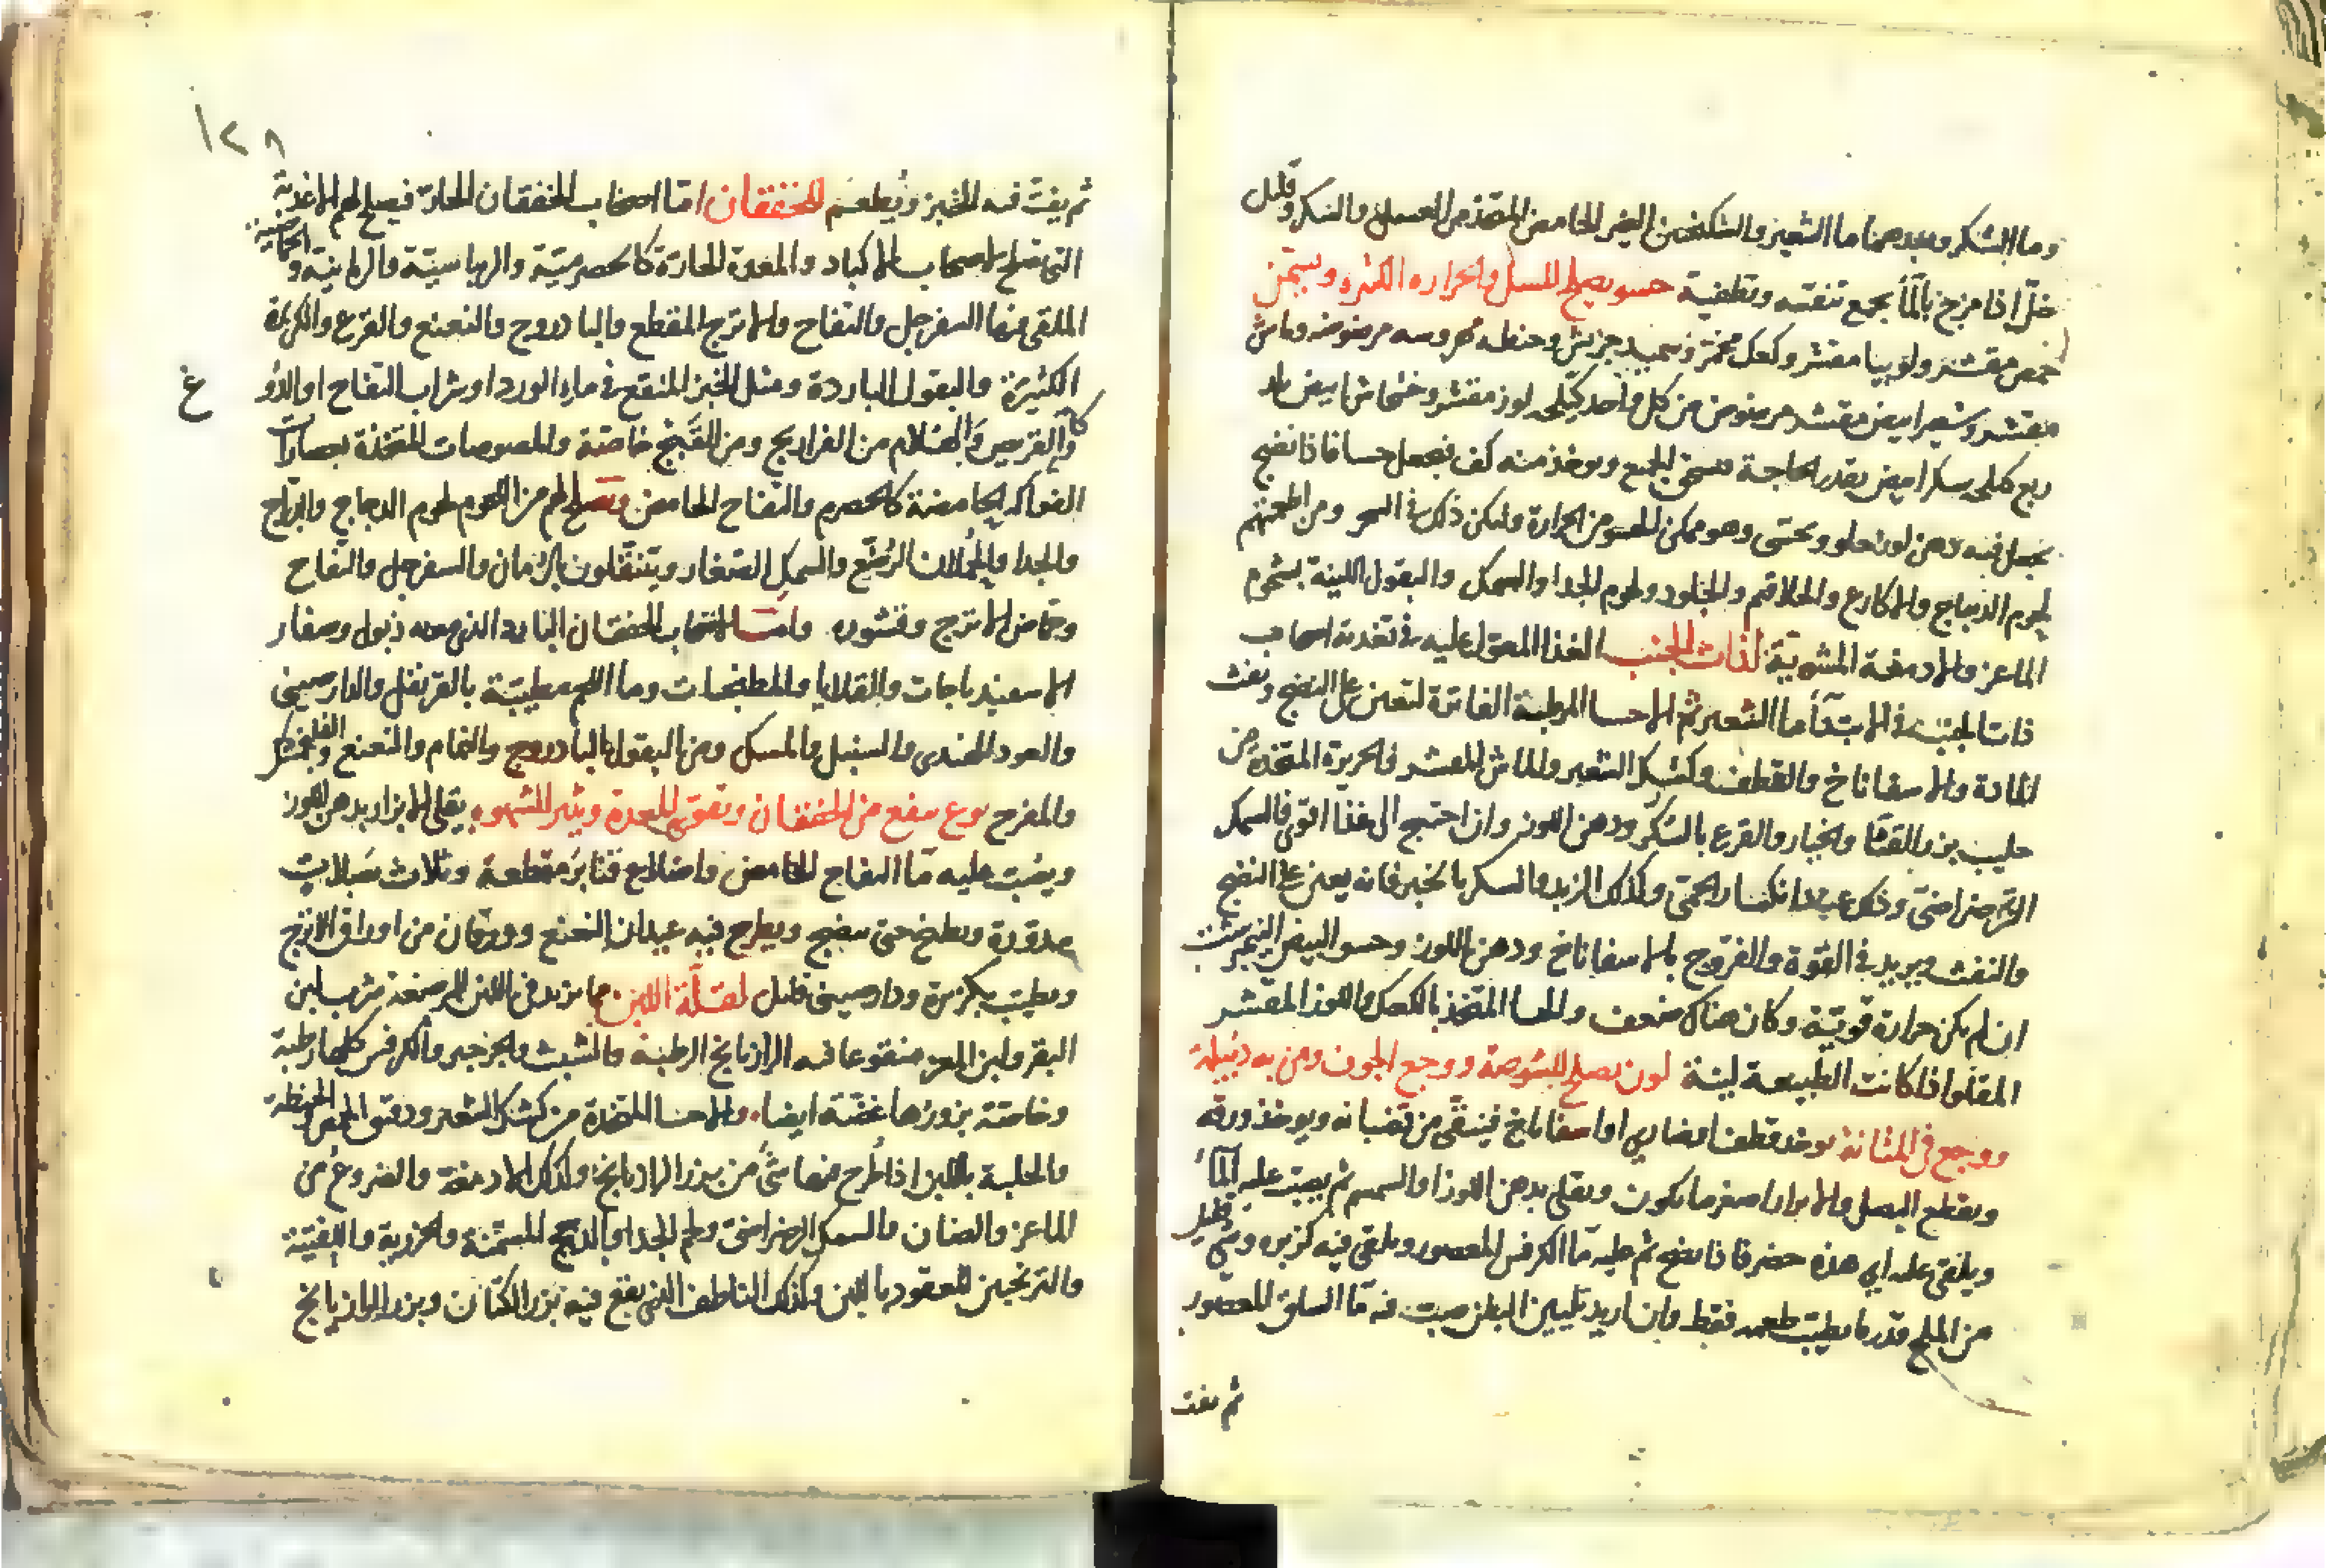 وماء السكر وبعدهما ماء الشعير والسكنجبين الغير الحامض المتخذ من العسل والسكر وقليل
خل اذا مزج بالماء يجمع تنفثه وتطفية حسو يصلح للسل والحرارة الكثيره ويسمن
حمص مقشر ولوبيا مقشر وكعك مختمر وسميد جريش وحنطه مهروسه مرضوضه وماش
مقشر وشعير ابيض مقشر مرضوض من كل واحد كيلجه لوز مقشر وخشخاش ابيض
ربع كيلجه سكر ابيض بقدر الحاجة يسحق الجميع ويوخذ منه كف فيعمل حسا فاذا نضج
يجعل فيه دهن لوز حلو ويحتسى وهو ممكن الحرارة وليكن ذلك في السحر ومن اطعمتهم
لحوم الدجاج والاكارع والحلاقم والجلود ولحوم الجدا والسمك والبقول اللينة بشحوم
الماعز والادمغة المشوية لذات الجنب الغذا المعول عليه في تغدية اصحاب
ذات الجنب في الابتدأ ماء الشعير ثم الاحسا المرطبة الفاترة لتعين على النضج ونفث
المادة والاسفاناخ والقطف وكشك الشعير والماش المقشر والحريرة المتخذة من
حليب بزر القثا والخيار والقرع بالسكر ودهن اللوز وان احتيج الى غذا اقوى فالسمك
الرضراضى وذلك عند انكسار الحمى وكذلك الزبد والسكر بالخبز فانه يعين على النضج
والنفث ويزيد في القوة والفروج بالاسفاناخ ودهن اللوز وحسو البيض النيمرشت
ان لم يكن حرارة قوية وكان هناك ضعف والحسا المتخذ بالكعك واللوز المقشر
المقلو اذا كانت الطبيعة لينة لون يصلح للشوصة ووجع الجوف ومن به دبيلة
ووجع في المثانة يوخذ قطف او اسفاناخ فينقى من قضبانه ويوخذ ورقه
ويقطع البصل والابزار اصغر ما يكون ويقلى بدهن اللوز او السمسم ثم يصب عليه الماء
ويلقى عليه اي هذه حضر فاذا نضج ثم عليه ماء الكرفس المعصور ويلقى فيه كزبره وشي قليل
من الملح قدر ما يطيب طعمه فقط وان اريد تليين البطن صب فيه ماء السلق المعصور
ثم يفت
١٢٨
ثم يفت فيه الخبز ويُطعم للخفقان امّا اصحاب الخفقان الحارة فيصلح لهم الاغذية
التي تصلح لاصحاب الاكباد والمعدة الحارة كالحصرمية والريباسية والرمانية والحماضية
الملقى فيها السفرجل والتفاح والاترج المقطع والبادروج والنعنع والقرع والكزبرة
الكثيرة والبقول الباردة ومثل الخبز المنقع في ماء الورد او شراب التفاح او الدو
غ
والقريص والهلام من الفراريج ومن القبج خاصة والمصوصات المتخذة بعصارات
الفواكه الحامضة كالحصرم والتفاح الحامض وتصلح لهم من اللحوم لحوم الدجاج والدراج
والجدا والحملان الرضع والسمك الصغار ويتنقلون بالرمان والسفرجل والتفاح
وحماض الاترج وقشوره وامّا اصحاب الخفقان البارد الذي معه ذبول وصفار
الاسفيدباجات والقلايا والمطجنات وماء اللحم مطيبة بالقرنفل والدارصيني
والعود الهندي والسنبل والمسك ومن البقول البادروج والنمام والنعنع والفلنجمشك
والمفرح نوع ينفع من الخفقان ويقوى المعدة ويثير الشهوه يقلى الابزار بدهن اللوز
ويصب عليه ماء التفاح الحامض واضلاع قنابر مقطعة وثلاث بصلات
مدقوقة ويطبخ حتى ينضج ويطرح فيه عيدان النعنع وورقان من اوراق الاترج
ويطيب بكزبرة ودارصيني قليل لقلّة اللبن مما يزيد في اللبن للمرضعة شرب لبن
البقر ولبن المعز منقوعا فيه الرازيانج الرطبة والشبث والجرجير والكرفس كلها رطبة
وخاصّة بزورها غضّة ايضا والاحسا المتخذة من كشك الشعير ودقيق الحمص الحنطة
والحلبة باللبن اذا طُرح فيها شئ من بزر الرازيانج وكذلك الادمغة والضروع من
الماعز والضان والسمك الرضراضى ولحم الجدا والدجج المسمنة والجزرية واللفتية
والترنجبين المعقود باللبن وكذلك الناطف الذي يقع فيه بزر الكتان وبزر الرازيانج